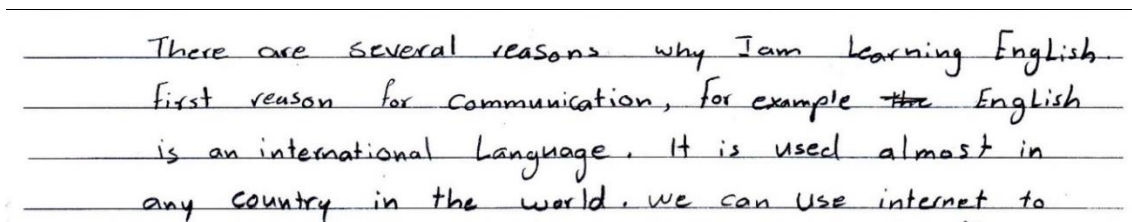 There are several reasons why I am Learning English.
first reason for communication, for example the English
is an international Language. It is used almost in
any country in the world. we can use internet to